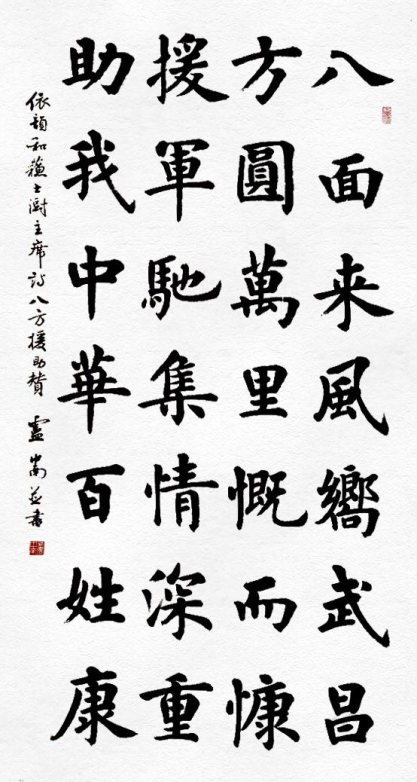 八面来風嚮武昌
方圓萬里慨而慷
援軍馳集情深重
助我中華百姓康
依韻和蘓士澍主席詩八方援助贊 盧中南並書